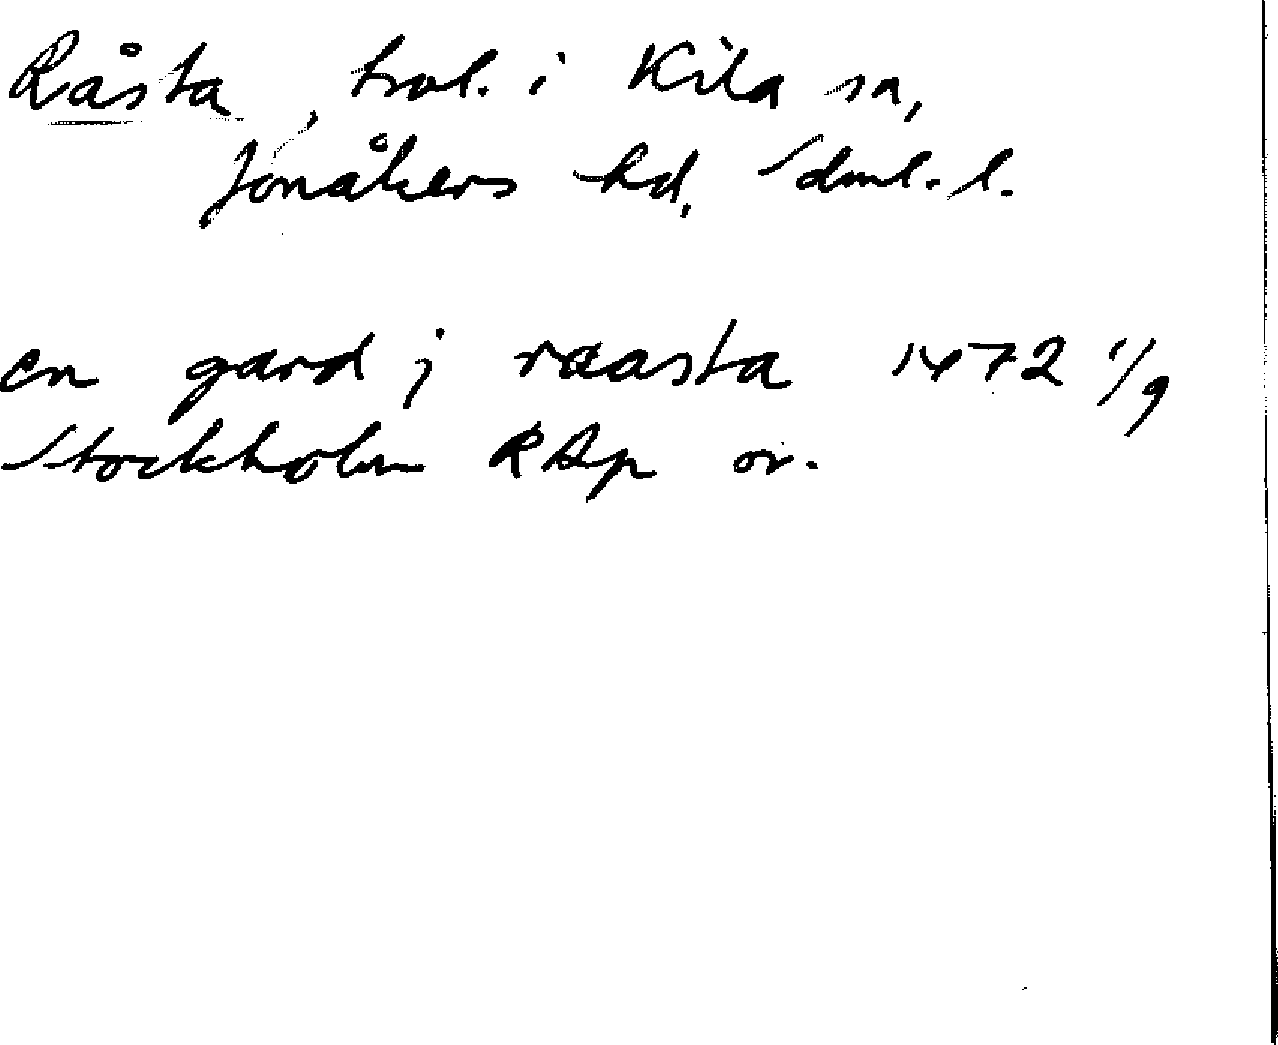 Råsta, trol. i Kila sn,
Jönåkers hd, Sdml. l.
en gard j raasta 1472 1/9
Stockholm RAp or.